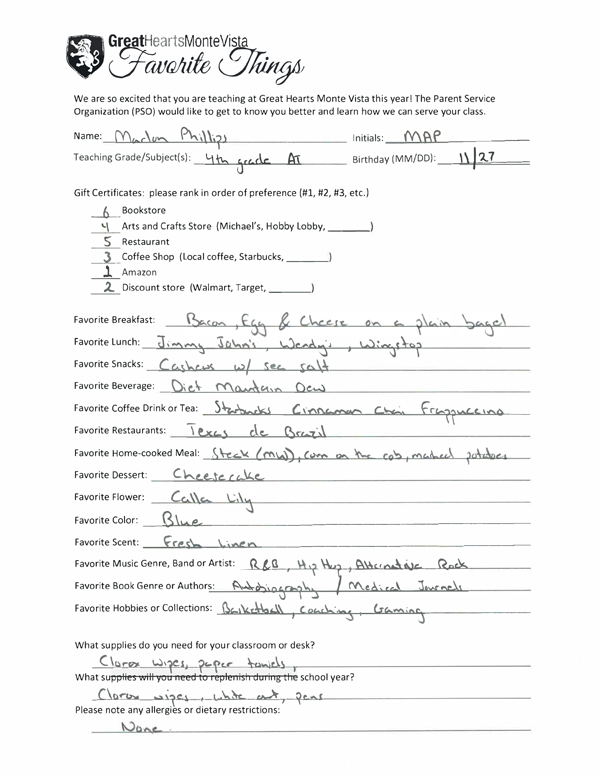 GreatHeartsMonteVista
Favorite Things
We are so excited that you are teaching at Great Hearts Monte Vista this year! The Parent Service
Organization (PSO) would like to get to know you better and learn how we can serve your class.
Name: Marlon Phillips Initials: MAP
Teaching Grade/Subject(s): 4th grade AT Birthday (MM/DD): 11/27
Gift Certificates: please rank in order of preference (#1, #2, #3, etc.)
6 Bookstore
4 Arts and Crafts Store (Michael's, Hobby Lobby, ________)
5 Restaurant
3 Coffee Shop (Local coffee, Starbucks, ________)
1 Amazon
2 Discount store (Walmart, Target, ________)
Favorite Breakfast: Bacon, Egg & Cheese on a plain bagel
Favorite Lunch: Jimmy John's, Wendy's, Wingstop
Favorite Snacks: Cashews w/ sea salt
Favorite Beverage: Diet Mountain Dew
Favorite Coffee Drink or Tea: Starbucks Cinnamon Chai Frappuccino
Favorite Restaurants: Texas de Brazil
Favorite Home-cooked Meal: Steak (MW), corn on the cob, mashed potatoes
Favorite Dessert: Cheesecake
Favorite Flower: Calla Lily
Favorite Color: Blue
Favorite Scent: Fresh Linen
Favorite Music Genre, Band or Artist: R&B, Hip Hop, Alternative Rock
Favorite Book Genre or Authors: Autobiography / Medical Journals
Favorite Hobbies or Collections: Basketball, Coaching, Gaming
What supplies do you need for your classroom or desk?
Clorox wipes, paper towels,
What supplies will you need to replenish during the school year?
Clorox wipes, white out, pens
Please note any allergies or dietary restrictions:
None.